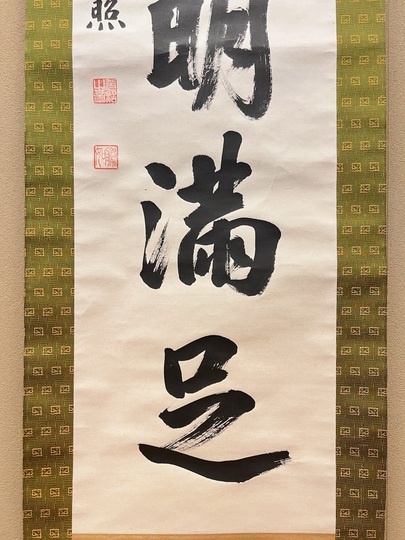 明満足
照